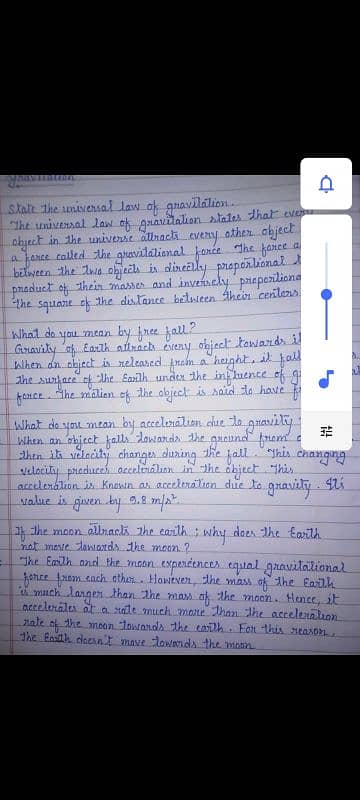 Gravitation
State the universal law of gravitation.
The universal law of gravitation states that every
object in the universe attracts every other object
a force called the gravitational force. The force a
between the two objects is directly proportional t
product of their masses and inversely proportiona
the square of the distance between their centers
What do you mean by free fall?
Gravity of Earth attracts every object towards it
When an object is released from a height, it fall
the surface of the Earth under the influence of g
force. The motion of the object is said to have f
What do you mean by acceleration due to gravity
When an object falls towards the ground from
then its velocity changes during the fall. This changing
velocity produces acceleration in the object. This
acceleration is known as acceleration due to gravity. Its
value is given by 9.8 m/s².
If the moon attracts the earth; why does the Earth
not move towards the moon?
The Earth and the moon experiences equal gravitational
force from each other. However, the mass of the Earth
is much larger than the mass of the moon. Hence, it
accelerates at a rate much more than the acceleration
rate of the moon towards the earth. For this reason,
the Earth doesn't move towards the moon